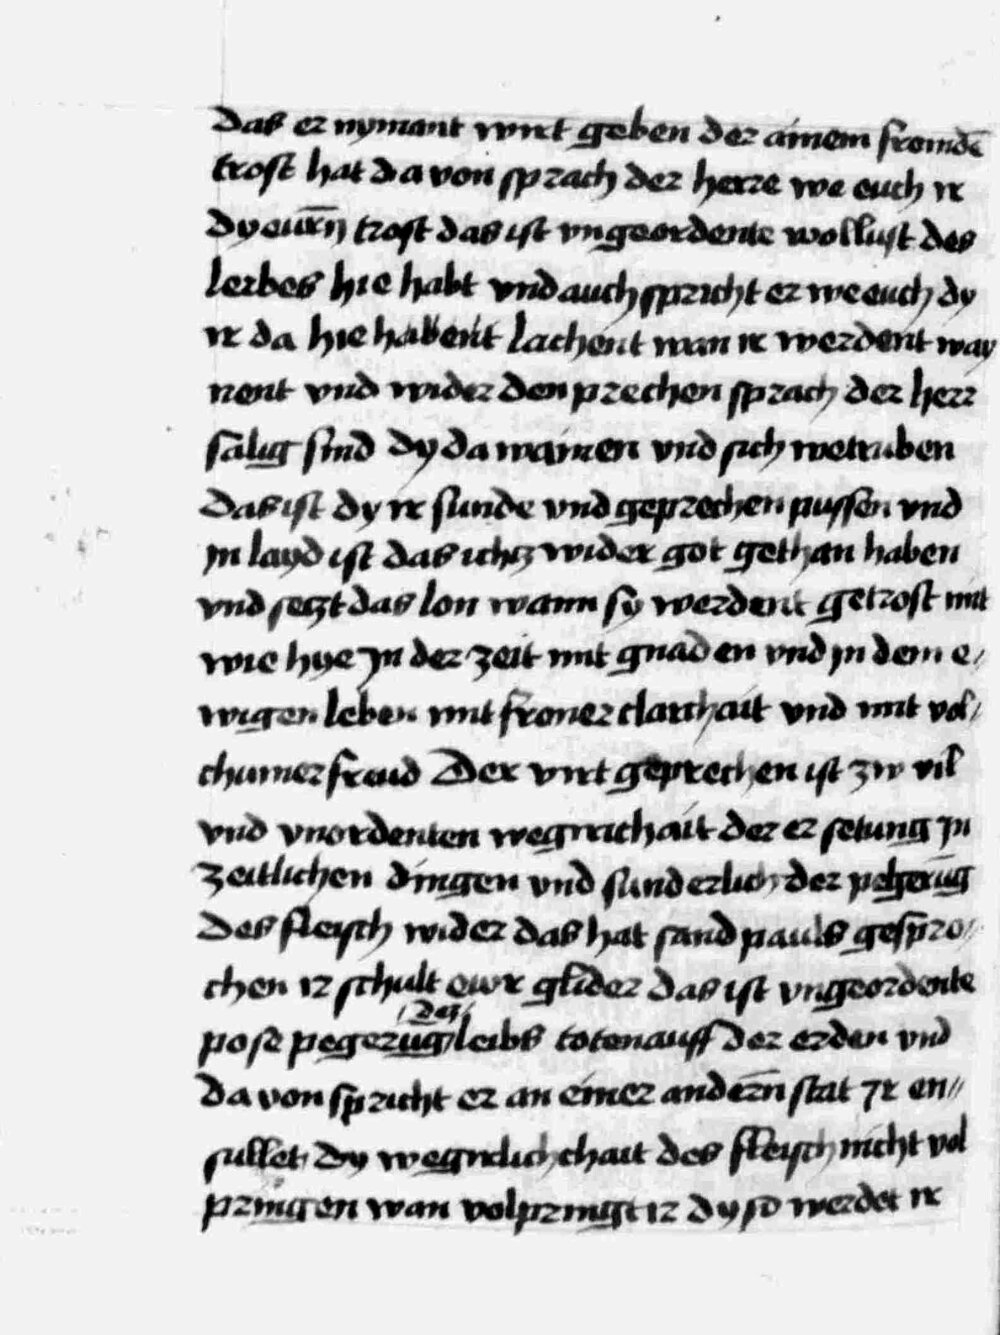 das er nymant wirt geben der ainem fremdē
trost hat da von sprach der herre we euch ir
dy eurn̄ trost das ist vngeordente wollust des
leibes hie habt vnd auch spricht er we euch dy
ir da hie habent lachent wan ir werdent way
nent vnd wider den prechen sprach der herr
sälig sind dy da wainen vnd sich wetruben
das ist dy ir sunde vnd geprechen pussen vnd
jn layd ist das ichtz wider got gethan haben
vnd setzt das lon wann sy werdent getrost mit
wie hye jn der zeit mit gnaden vnd jn dem e⸗
wigen leben mit froner clarhait vnd mit vol⸗
chumer freud Der virt geprechen ist zw vil
vnd vnordenten wegirichait der er setung jn
zeitlichen dingen vnd sunderlich der pegerūg
des fleisch wider das hat sand pauls gespro⸗
chen ir schult ewr glider das ist vngeordente
pose pegerūg des leibs toten auff der erden vnd
da von spricht er an einer andern̄ stat Ir en⸗
sullet dy wegirdichait des fleisch nicht vol
pringen wan volpringt ir dy so werdet ir